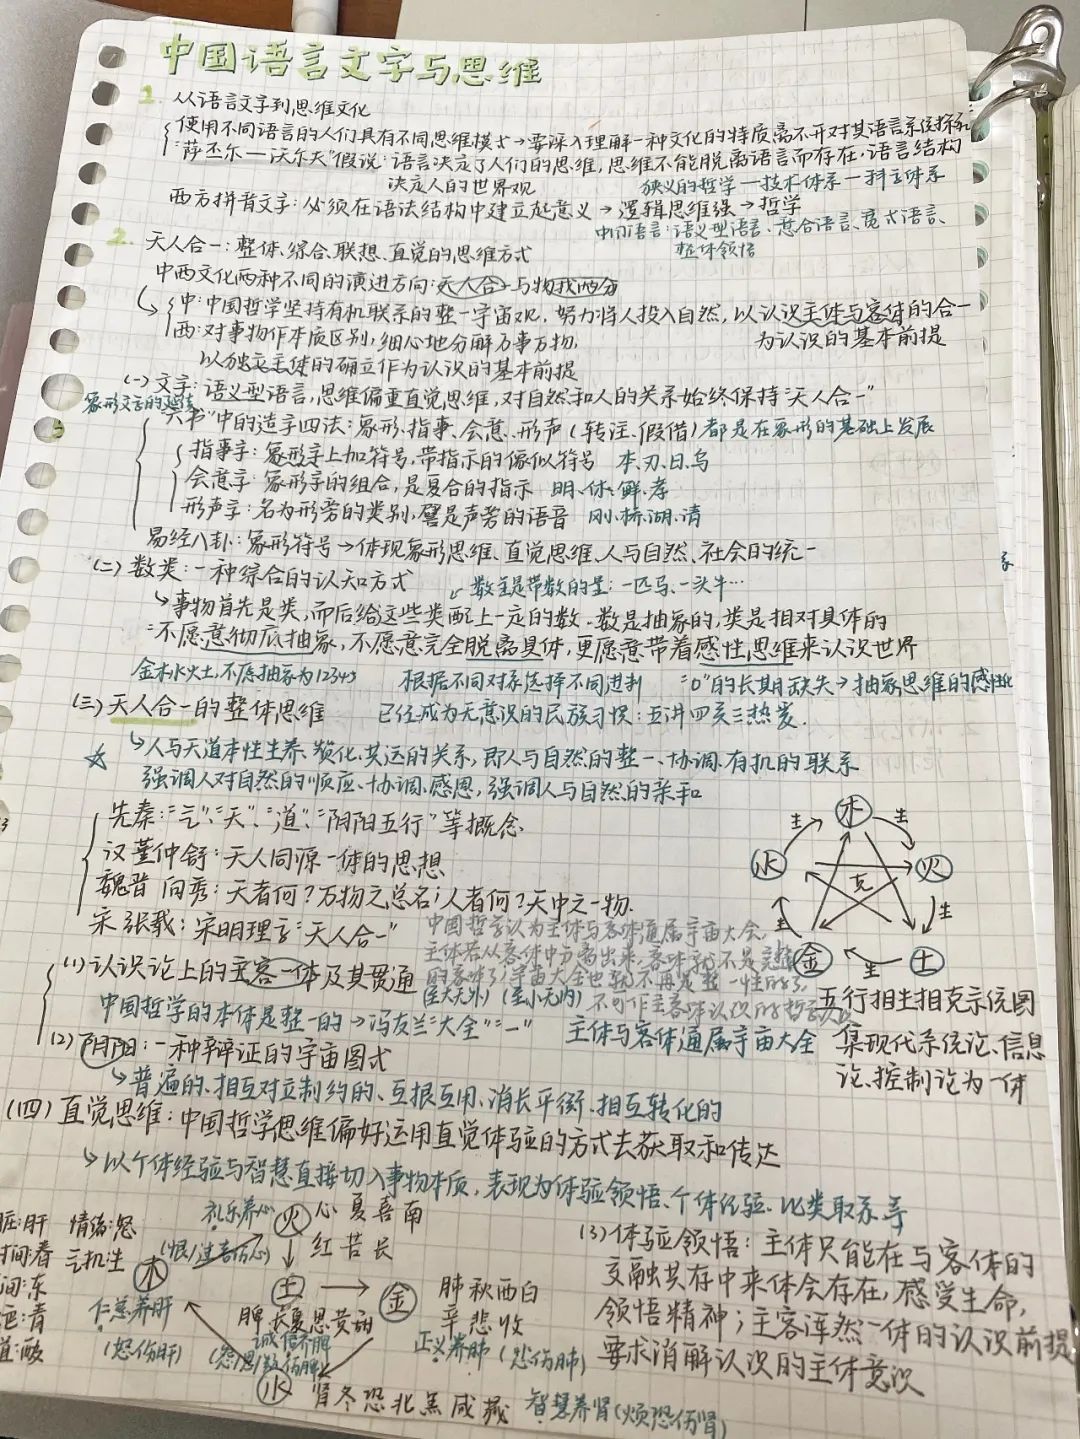 中国语言文字与思维
1. 从语言文字到思维文化
使用不同语言的人们具有不同思维模式→要深入理解一种文化的特质离不开对其语言系统探究
"萨丕尔—沃尔夫"假说:语言决定了人们的思维,思维不能脱离语言而存在,语言结构
决定人的世界观
狭义的哲学—技术体系—科学体系
西方拼音文字:必须在语法结构中建立起意义→逻辑思维强→哲学
中国语言:语义型语言、意合语言、
整体领悟
2. 天人合一:整体、综合、联想、直觉的思维方式
中西文化两种不同的演进方向:天人合一与物我两分
中:中国哲学坚持有机联系的整一宇宙观,努力将人投入自然,以认识主体与客体的合一
为认识的基本前提
西:对事物作本质区别,细心地分解万事万物,
以独立主体的确立作为认识的基本前提
(一)文字:语义型语言,思维偏重直觉思维,对自然和人的关系始终保持"天人合一"
象形文字的延续
"六书"中的造字四法:象形、指事、会意、形声(转注、假借)都是在象形的基础上发展
指事字:象形字上加符号,带指示的像似符号 本、刃、日、乌
会意字:象形字的组合,是复合的指示 明、休、鲜、孝
形声字:名为形旁的类别,譬是声旁的语音 刚、桥、湖、清
易经八卦:象形符号→体现象形思维、直觉思维、人与自然、社会的统一
(二)数类:一种综合的认知方式
数全是带数的量:一匹马、一头牛…
↳事物首先是类,而后给这些类配上一定的数.数是抽象的,类是相对具体的
"不愿意彻底抽象,不愿意完全脱离具体,更愿意带着感性思维来认识世界
金木水火土,不愿抽象为12345 根据不同对象选择不同进制 "0"的长期缺失→抽象思维的感性化
(三)天人合一的整体思维 已经成为无意识的民族习惯:五讲四美三热爱.
☆ ↳人与天道本性生养、赞化、共运的关系,即人与自然的整一、协调、有机的联系
强调人对自然的顺应、协调、感恩,强调人与自然的亲和
先秦:"气"、"天"、"道"、"阴阳五行"等概念
汉 董仲舒:天人同源一体的思想
魏晋 向秀:天者何?万物之总名;人者何?天中之一物.
宋 张载:宋明理学"天人合一"
中国哲学认为主体与客体通属宇宙大全,
主体若从客体中分离出来,客体就不是完整
的客体了,宇宙大全也就不再是整一性的了,
(至大无外)(至小无内)
(1)认识论上的主客一体及其贯通
中国哲学的本体是整一的→冯友兰"大全""一" 主体与客体通属宇宙大全
(2)阴阳:一种辩证的宇宙图式
↳普遍的、相互对立制约的、互根互用、消长平衡、相互转化的
木 生 火 生 土 生 金 生 水 生
克
五行相生相克系统图
集现代系统论、信息
论、控制论为一体
(四)直觉思维:中国哲学思维偏好运用直觉体验的方式去获取和传达
↳以个体经验与智慧直接切入事物本质,表现为体验领悟、个体经验、比类取象等
礼乐养心 火 心 夏喜南
(恨/过喜伤心) 红苦长
脏:肝 情绪:怒
时间:春 气机:生
木
仁慈养肝
(怒伤肝)
土 脾 长夏思黄甜
诚信养脾
金 肺秋西白
辛悲收
正义养肺(怨伤肺)
水 肾冬恐北黑咸藏 智慧养肾(烦恐伤肾)
(3)体验领悟:主体只能在与客体的
交融共存中来体会存在,感受生命,
领悟精神;主客浑然一体的认识前提
要求消解认识的主体意识